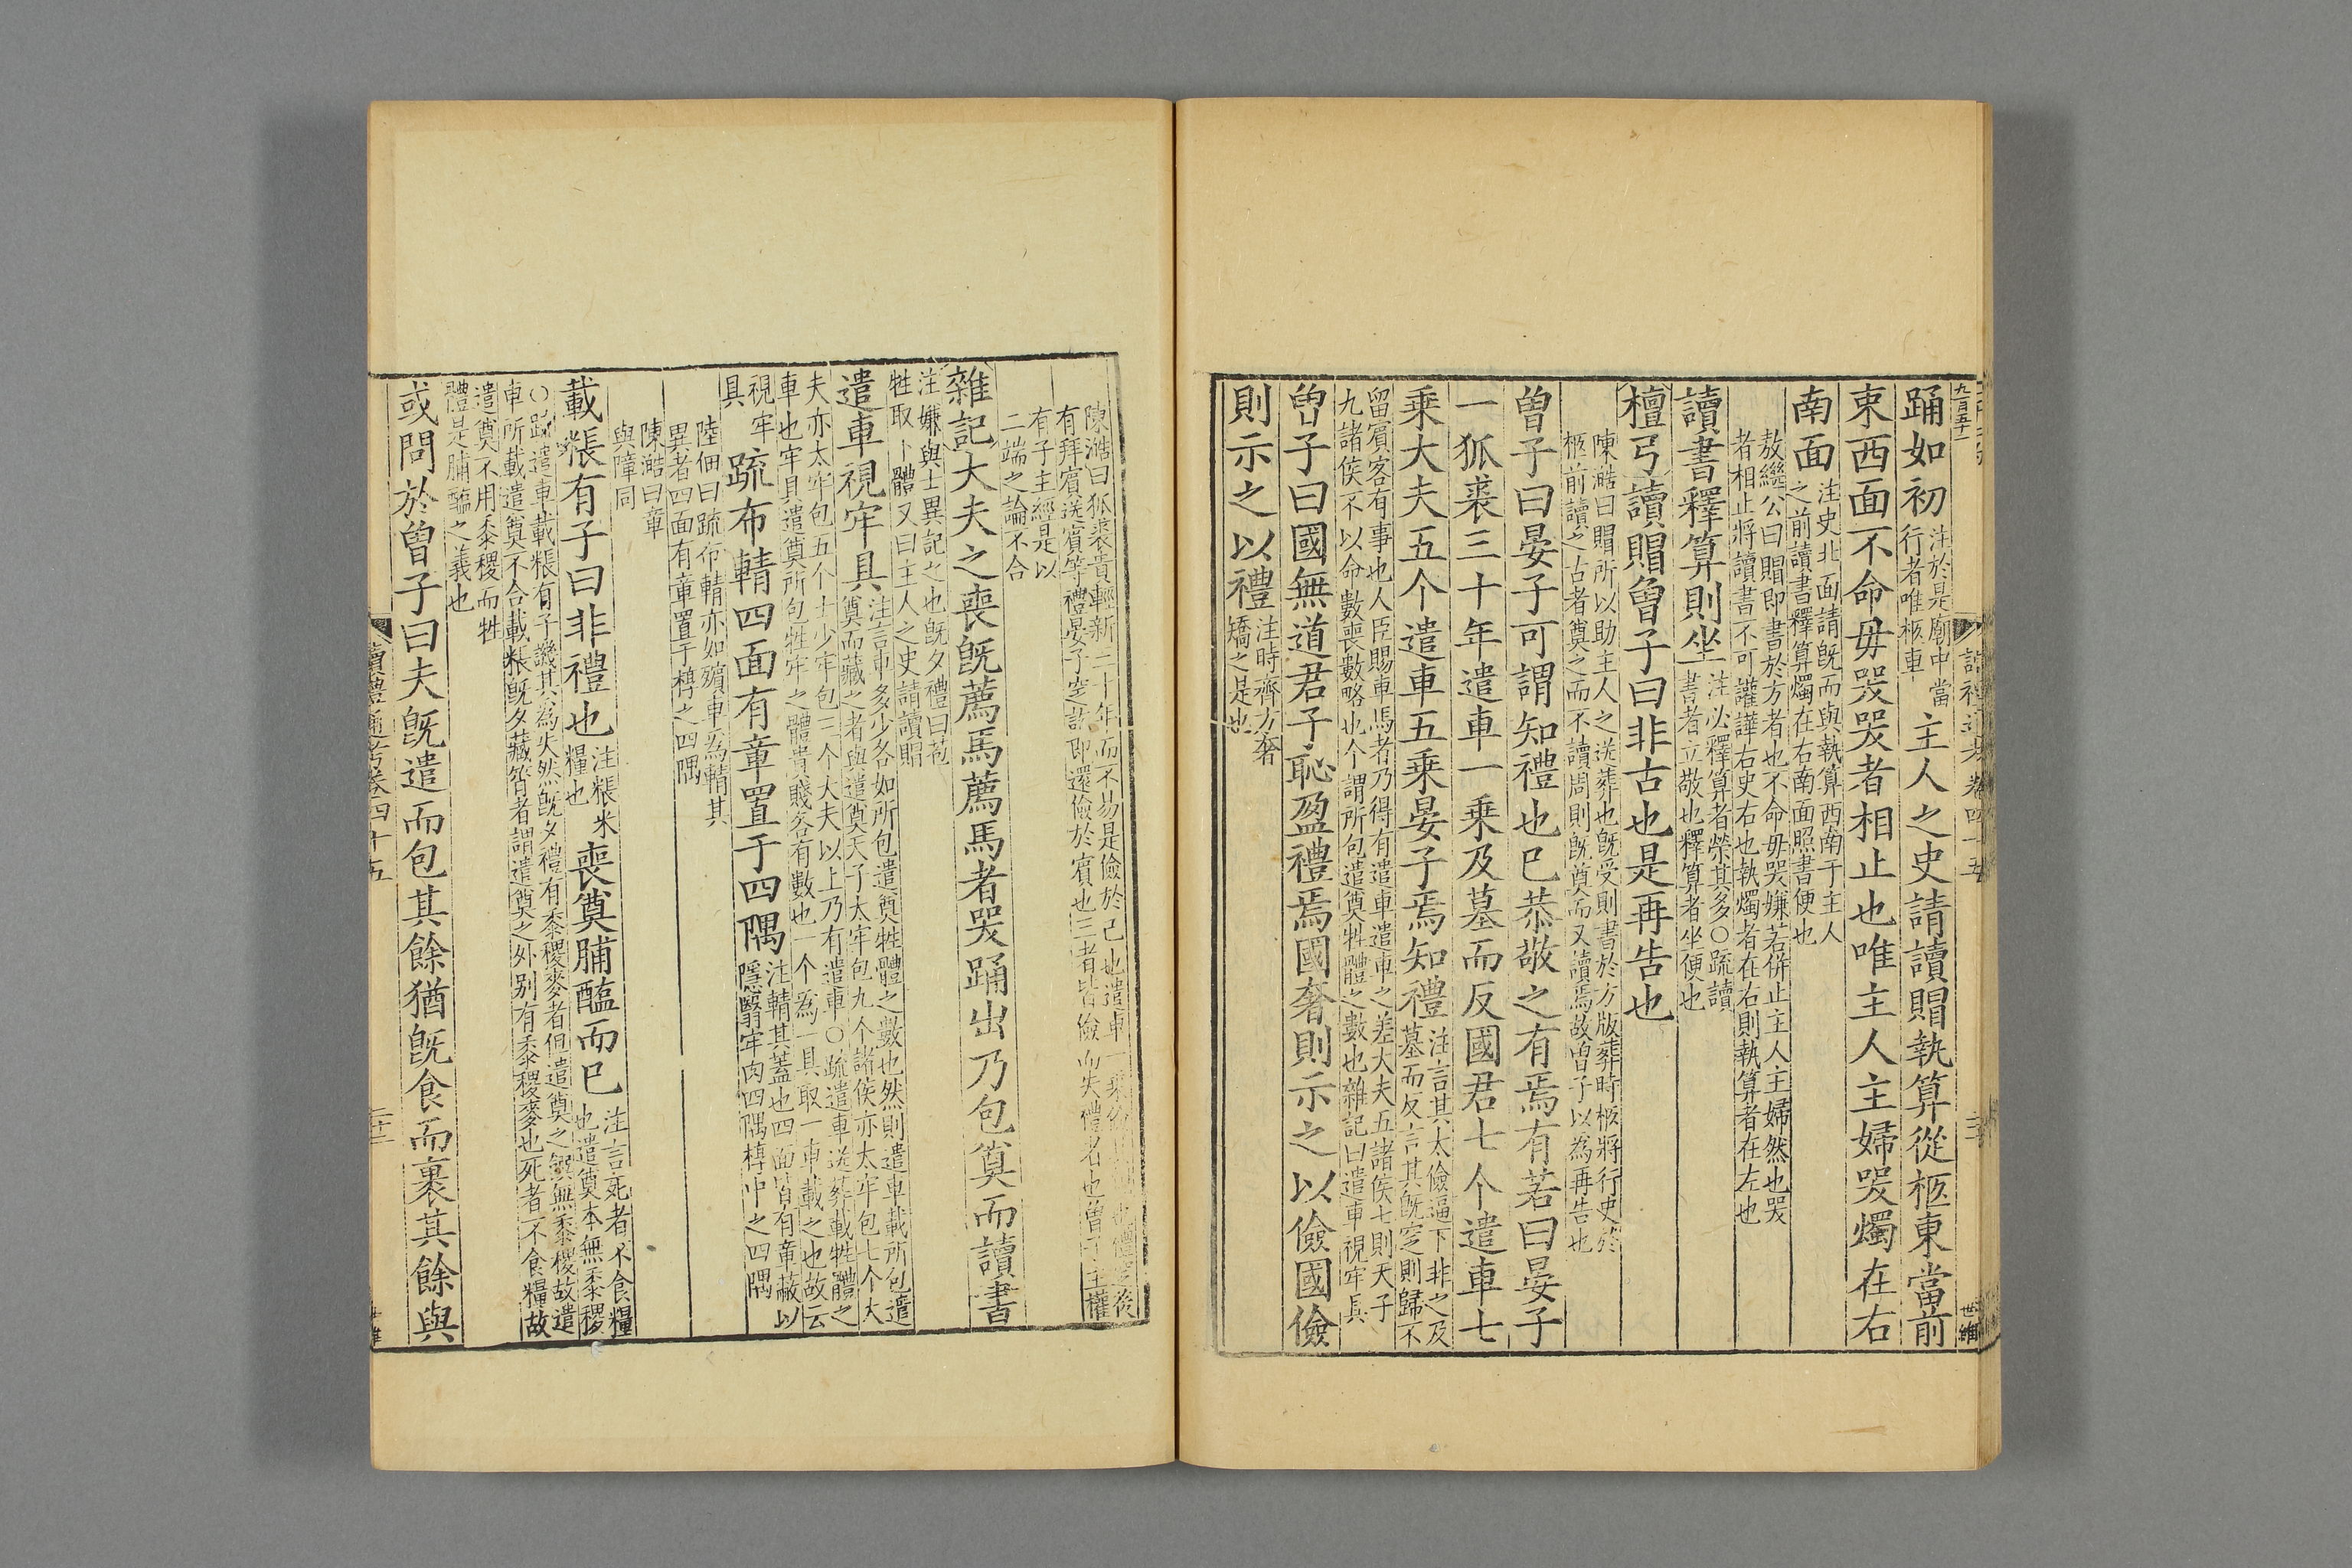 踊如初注於是廟中當行者唯柩車主人之史請讀賵執算從柩東當前
東西面不命毋哭哭者相止也唯主人主婦哭燭在右
南面注史北面請既而與執算西南于主人之前讀書釋算燭在右南面照書便也
敖繼公曰賵即書於方者也不命毋哭嫌若併止主人主婦然也哭者相止將讀書不可讙譁右史右也執燭者在右則執算者在左也
讀書釋算則坐注必釋算者榮其多○疏讀書者立敬也釋算者坐便也
檀弓讀賵曾子曰非古也是再告也
陳澔曰賵所以助主人之送葬也既受則書於方版葬時柩將行史於柩前讀之古者奠之而不讀周則既奠而又讀焉故曾子以為再告也
曾子曰晏子可謂知禮也已恭敬之有焉有若曰晏子
一狐裘三十年遣車一乗及墓而反國君七个遣車七
乗大夫五个遣車五乗晏子焉知禮注言其太儉逼下非之及墓而反言其既窆則歸不
留賓客有事也人臣賜車馬者乃得有遣車遣車之差大夫五諸侯七則天子九諸侯不以命數喪數略也个謂所包遣奠牲體之數也雜記曰遣車視牢具
曾子曰國無道君子恥盈禮焉國奢則示之以儉國儉
則示之以禮注時齊方奢矯之是也
陳澔曰狐裘貴輕新三十年而不易是儉於己也遣車一乗
有拜賓送賓等禮晏子窆訖即還儉於賓也三者皆儉而失禮者也曾子主權
有子主經是以二端之論不合
雜記大夫之喪既薦馬薦馬者哭踊出乃包奠而讀書
注嫌與士異記之也既夕禮曰苞牲取下體又曰主人之史請讀賵
遣車視牢具注言車多少各如所包遣奠牲體之數也然則遣車載所包遣奠而藏之者與遣奠天子太牢包九个諸侯亦太牢包七个大
夫亦太牢包五个士少牢包三个大夫以上乃有遣車○疏遣車送葬載牲體之車也牢具遣奠所包牲牢之體貴賤各有數也一个為一具取一車載之也故云
視牢具疏布輤四面有章置于四隅注輤其蓋也四面皆有章蔽以隱翳牢肉四隅椁中之四隅
陸佃曰疏布輤亦如殯車為輤其異者四面有章置于椁之四隅
陳澔曰章與障同
載粻有子曰非禮也注粻米糧也喪奠脯醢而已注言死者不食糧也遣奠本無黍稷
○疏遣車載粻有子譏其為失然既夕禮有黍稷麥者但遣奠之饌無黍稷故遣車所載遣奠不合載粻既夕藏筲者謂遣奠之外别有黍稷麥也死者不食糧故
遣奠不用黍稷而牲體是脯醢之義也
或問於曾子曰夫既遣而包其餘猶既食而裹其餘與
讀禮通考卷四十五